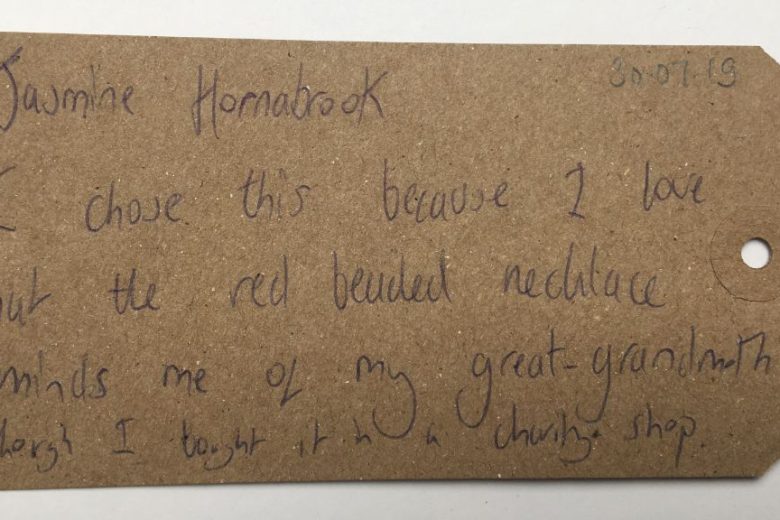 Jasmine Hornabrook 30.07.19
I chose this because I love
but the red beaded necklace
minds me of my great-grandmoth
though I bought it in a charity shop.